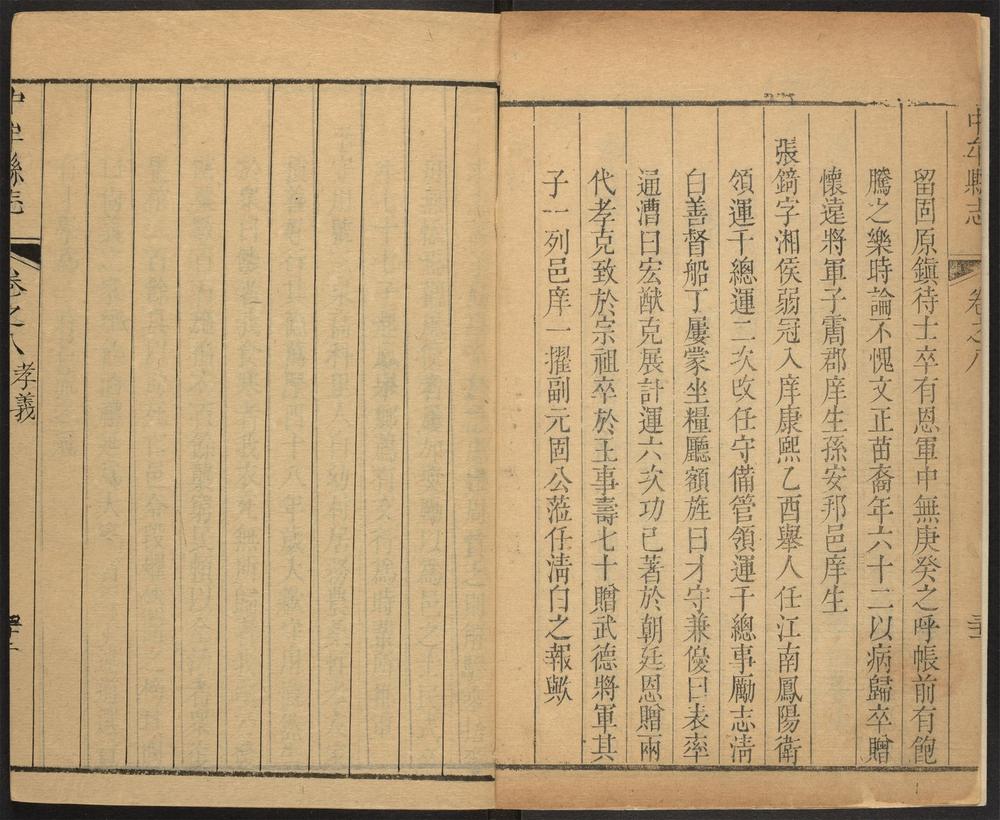 中牟縣志
卷之八
留固原鎮待士卒有恩軍中無庚癸之呼帳前有飽
騰之樂時論不愧文正苗裔年六十二以病歸卒贈
懷遠將軍子霌郡庠生孫安邦邑庠生
張錡字湘侯弱冠入庠康熙乙酉舉人任江南鳳陽衛
領運千總運二次改任守備管領運千總事勵志清
白善督船丁屢蒙坐糧廳額旌曰才守兼優曰表率
通漕曰宏猷克展計運六次功已著於朝廷恩贈兩
代孝克致於宗祖卒於王事壽七十贈武德將軍其
子一列邑庠一擢副元固公蒞任清白之報歟
中牟縣志
卷之八
孝義